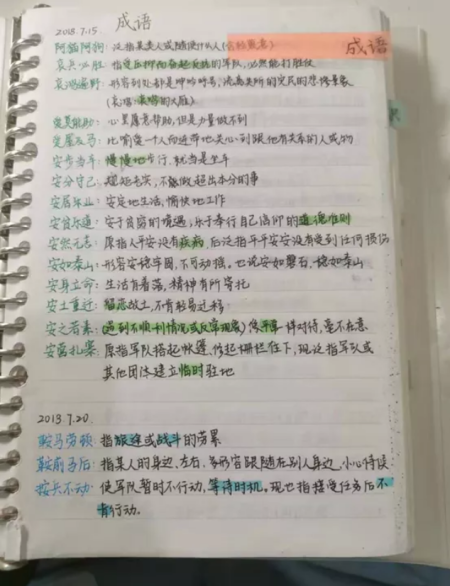 2018.7.15. 成语
成语
阿猫阿狗：泛指某类人或随便什么人（含轻蔑意）
哀兵必胜：指受压抑而奋起反抗的军队，必然能打胜仗
哀鸿遍野：形容到处都是呻吟呼号，流离失所的灾民的悲惨景象
（哀鸿：哀鸣的大雁）
爱莫能助：心里愿意帮助，但是力量做不到
爱屋及乌：比喻爱一个人而连带地关心到跟他有关系的人或物
安步当车：慢慢地步行，就当是坐车
安分守己：规矩老实，不做超出本分的事
安居乐业：安定地生活，愉快地工作
安贫乐道：安于贫穷的境遇，乐于奉行自己信仰的道德准则
安然无恙：原指人平安没有疾病，后泛指平平安安没有受到任何损伤
安如泰山：形容安稳牢固，不可动摇。也说安如磐石，稳如泰山
安身立命：生活有着落，精神有所寄托
安土重迁：留恋故土，不肯轻易迁移
安之若素：（遇到不顺利情况或反常现象）像平常一样对待，毫不在意
安营扎寨：原指军队搭起帐篷，修起栅栏住下，现泛指军队或
其他团体建立临时驻地
2013.7.20.
鞍马劳顿：指旅途或战斗的劳累
鞍前马后：指某人的身边、左右，多形容跟随在别人身边，小心侍候
按兵不动：使军队暂时不行动，等待时机。现也指接受任务后不
肯行动。